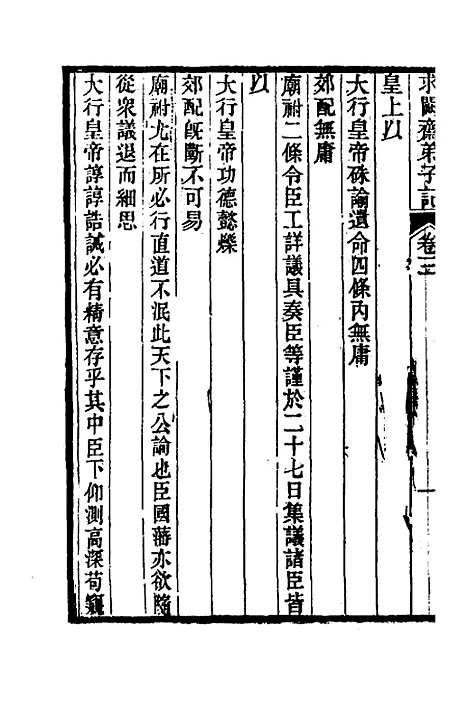 求闕齋弟子記
卷二
皇上以
大行皇帝硃諭遺命四條內無庸
郊配無庸
廟祔二條令臣工詳議具奏臣等謹於二十七日集議諸臣皆
以
大行皇帝功德懿爍
郊配既斷不可易
廟祔尤在所必行直道不泯此天下之公論也臣國藩亦欲隨
從眾議退而細思
大行皇帝諄諄誥誡必有精意存乎其中臣下仰測高深苟窺